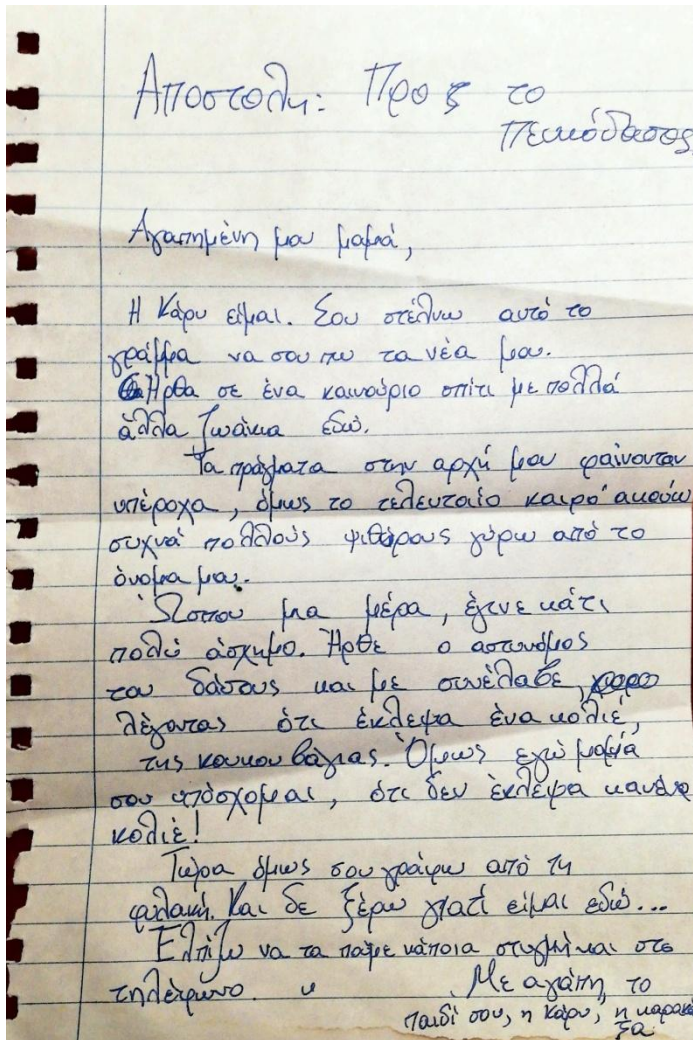 Αποστολη: Προς το
Πευκόδασος,
Αγαπημένη μου μαμά,
Η Κάρυ είμαι. Σου στέλνω αυτό το
γράμμα να σου πω τα νέα μου.
Ήρθα σε ένα καινούριο σπίτι με πολλά
άλλα ζωάκια εδώ.
Τα πράγματα στην αρχή μου φαίνονταν
υπέροχα, όμως το τελευταίο καιρό ακούω
συχνά πολλούς ψιθύρους γύρω από το
όνομα μου.
Ώσπου μια μέρα, έγινε κάτι
πολύ άσχημο. Ήρθε ο αστυνόμος
του δάσους και με συνέλαβε,
λέγοντας ότι έκλεψα ένα κολιέ,
της κουκουβάγιας. Όμως εγώ μαμά
σου υπόσχομαι, ότι δεν έκλεψα κανένα
κολιέ!
Τώρα όμως σου γράφω από τη
φυλακή. Και δε ξέρω γιατί είμαι εδώ...
Ελπίζω να τα πούμε κάποια στιγμή και στο
τηλέφωνο. Με αγάπη, το
παιδί σου, η Κάρυ, η καρακά
ξα